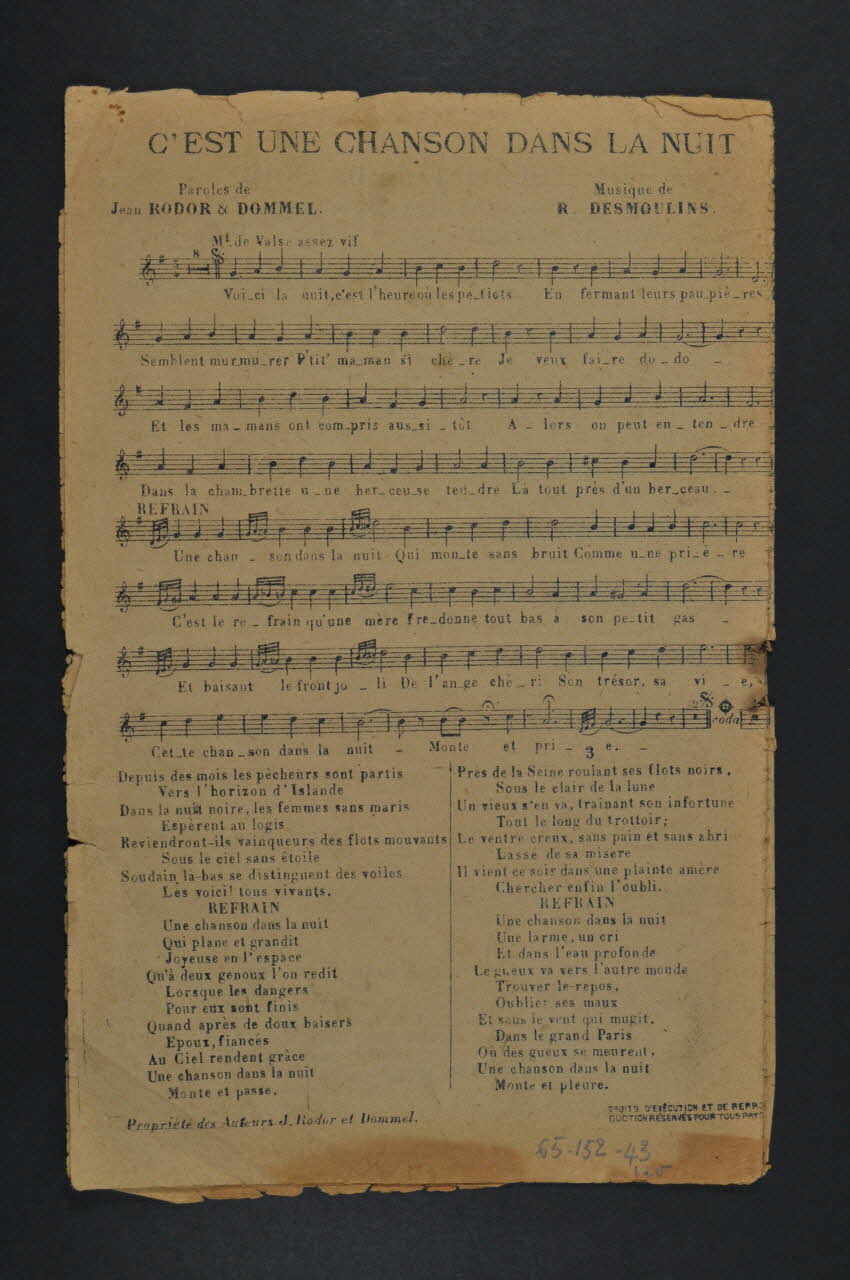 C'EST UNE CHANSON DANS LA NUIT
Paroles de
Jean RODOR & DOMMEL.
Musique de
R. DESMOULINS.
Mt. de Valse assez vif
8
Voi_ci la nuit, c'est l'heure où les pe_tiots En fermant leurs pau_piè_res
Semblent mur_mu_rer P'tit' ma_man si chè_re Je veux fai_re do_do _
Et les ma_mans ont com_pris aus_si_tôt A_lors on peut en_ten_dre
Dans la cham_brette u_ne ber_ceu_se ten_dre Là tout près d'un ber_ceau. _
REFRAIN
Une chan_son dans la nuit Qui mon_te sans bruit Comme u_ne pri_è_re
C'est le re_frain qu'une mère fre_donne tout bas à son pe_tit gas _
Et baisant le front jo_li De l'an_ge ché_ri Son trésor, sa vi_e,
Coda
Cet_te chan_son dans la nuit _ Monte et pri_e. _
Depuis des mois les pêcheurs sont partis
Vers l'horizon d'Islande
Dans la nuit noire, les femmes sans maris
Espèrent au logis
Reviendront-ils vainqueurs des flots mouvants
Sous le ciel sans étoile
Soudain là-bas se distinguent des voiles
Les voici! tous vivants.
REFRAIN
Une chanson dans la nuit
Qui plane et grandit
Joyeuse en l'espace
Qu'à deux genoux l'on redit
Lorsque les dangers
Pour eux sont finis
Quand après de doux baisers
Epoux, fiancés
Au Ciel rendent grâce
Une chanson dans la nuit
Monte et passe.
3
Près de la Seine roulant ses flots noirs,
Sous le clair de la lune
Un vieux s'en va, traînant son infortune
Tout le long du trottoir;
Le ventre creux, sans pain et sans abri
Lassé de sa misère
Il vient ce soir dans une plainte amère
Chercher enfin l'oubli.
REFRAIN
Une chanson dans la nuit
Une larme, un cri
Et dans l'eau profonde
Le gueux va vers l'autre monde
Trouver le repos,
Oublier ses maux
Et sous le vent qui mugit,
Dans le grand Paris
Où des gueux se meurent,
Une chanson dans la nuit
Monte et pleure.
Propriété des Auteurs J. Rodor et Dommel.
DROITS D'EXÉCUTION ET DE REPRO
DUCTION RÉSERVÉS POUR TOUS PAYS
65-152-43